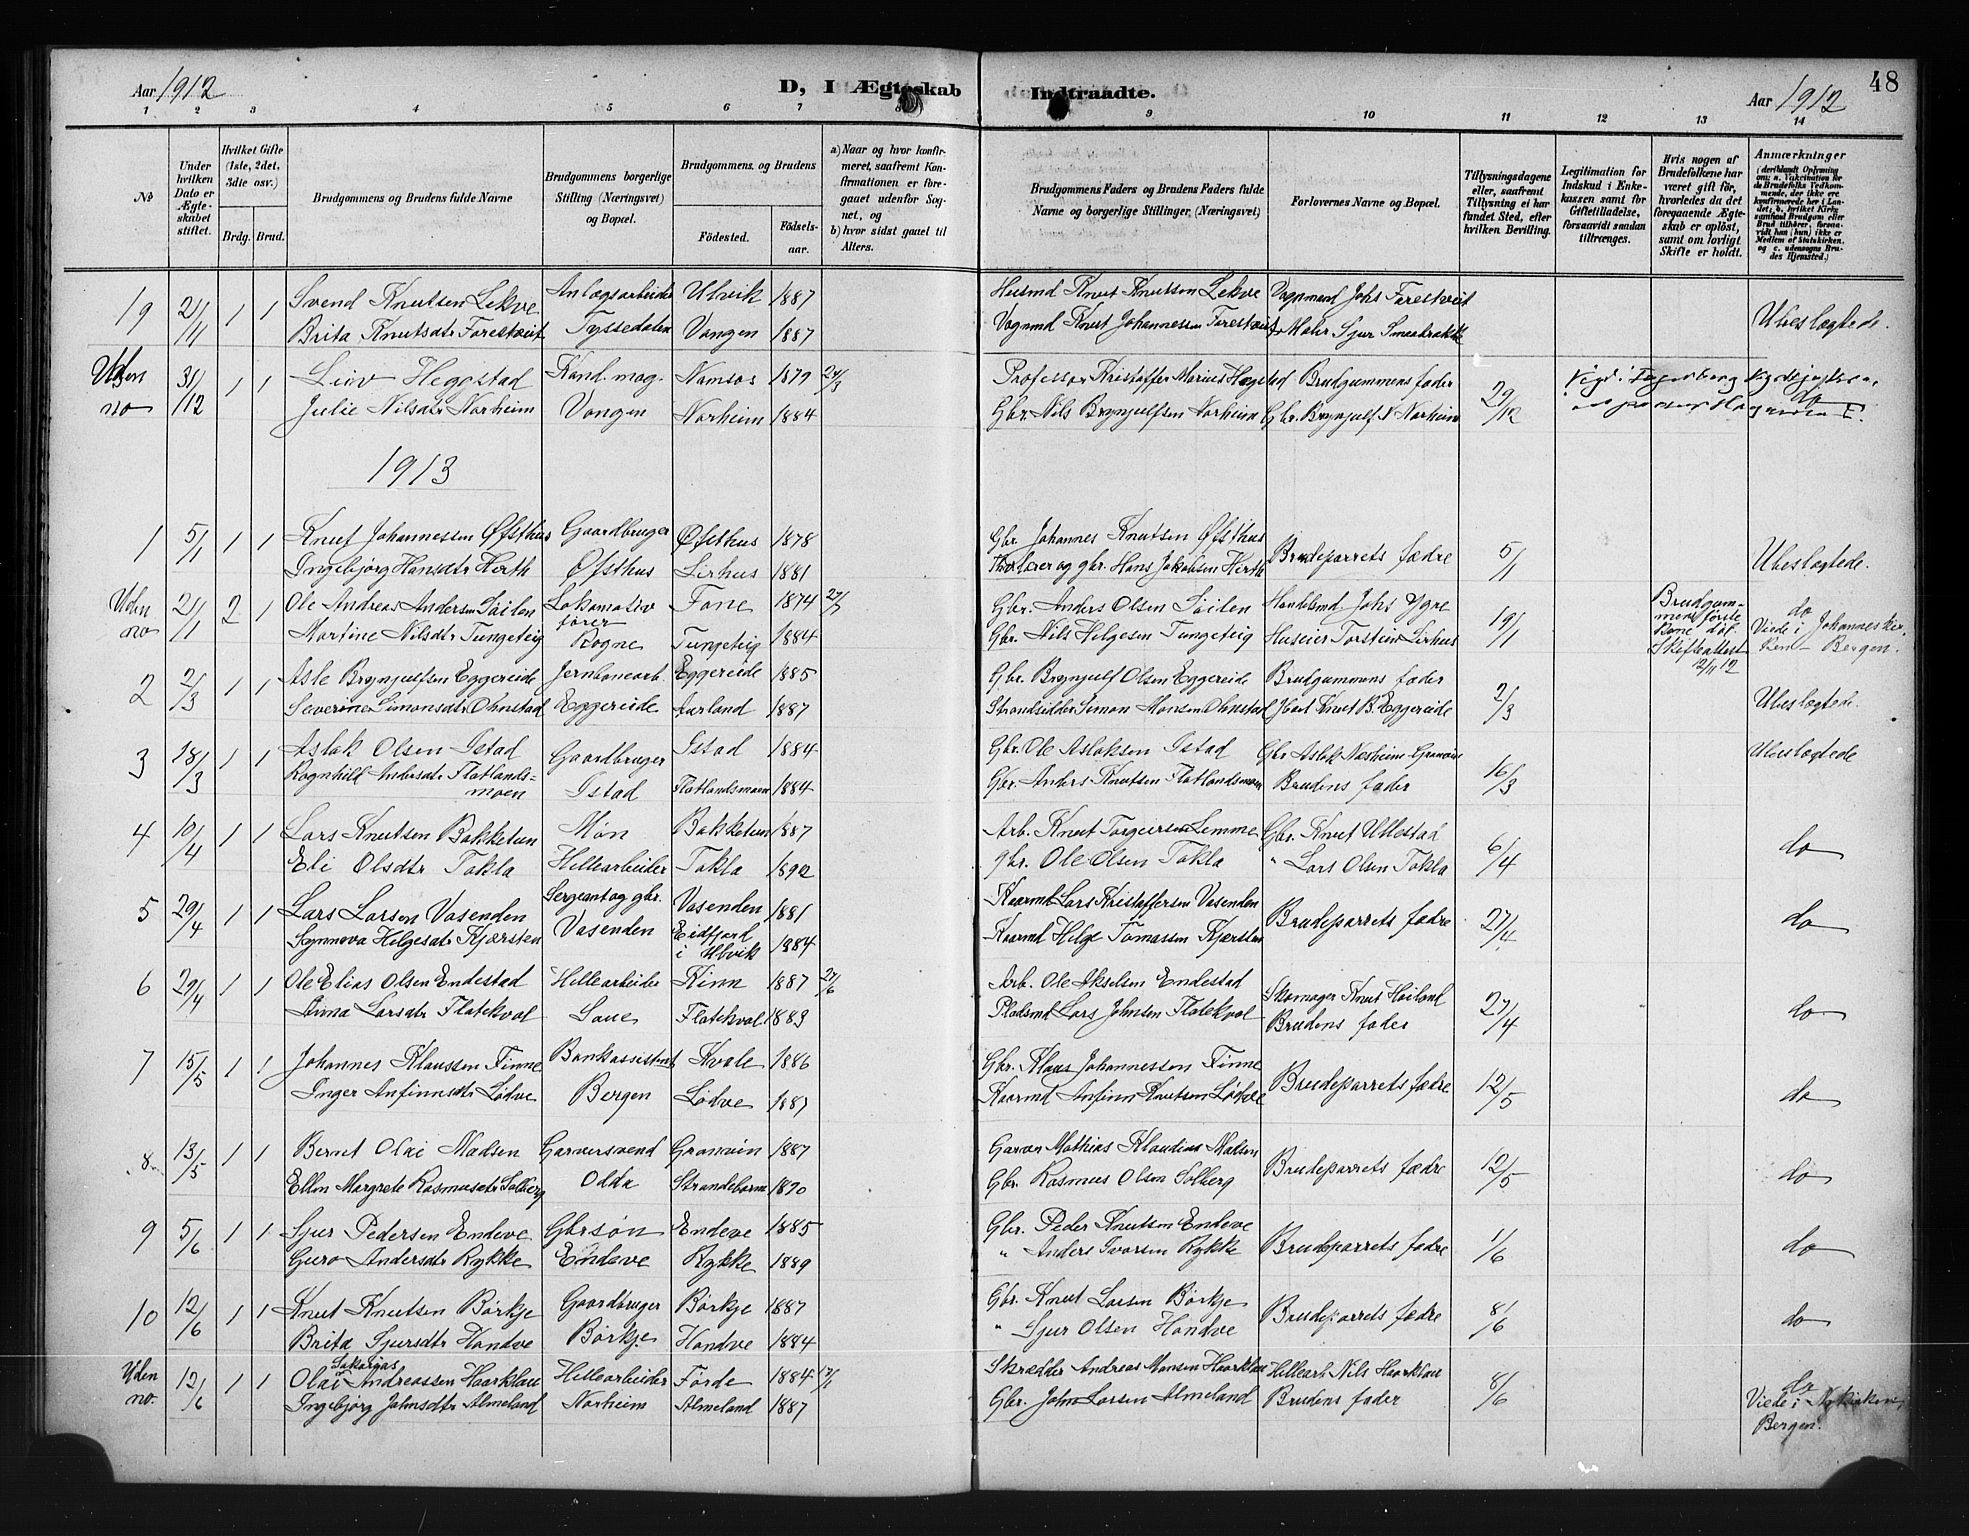 Aar 1912
D, I Ægteskab
Indtraadte.
Aar 1912
48
1 2 3 4 5 6 7 8 9 10 11 12 13 14
No
Under hvilken Dato er Ægteskabet stiftet.
Hvilket Gifte (1ste, 2det, 3die osv.)
Brdg. Brud.
Brudgommens og Brudens fulde Navne
Brudgommens borgerlige Stilling (Næringsvei) og Bopæl.
Brudgommens og Brudens
Fødested.
Fødselsaar.
a) Naar og hvor konfirmeret, saafremt Konfirmationen er foregaaet udenfor Sognet, og
b) hvor sidst gaaet til Alters.
Brudgommens Faders og Brudens Faders fulde Navne og borgerlige Stillinger, (Næringsvei)
Forlovernes Navne og Bopæl.
Tillysningsdagene eller, saafremt Tillysning ei har fundet Sted, efter hvilken Bevilling.
Legitimation for Indskud i Enkekassen samt for Giftetilladelse, forsaavidt saadan tiltrænges.
Hvis nogen af Brudefolkene har været gift før, hvorledes da det foregaaende Ægteskab er opløst, samt om lovligt Skifte er holdt.
Anmærkninger
19 21/11 1 1 Svend Knutsen Lekve Anlægsarbeider Ulvik 1887 Husmd Knut Knutsen Lekve Vognmand Johs Forestveit Ubeslægtede.
Brita Knutsdtr Forestveit Tyssedalen Vangen 1887 Vognmd Knut Johannessen Forestveit Maler Sjur Smeabrække
Uden no 31/12 1 1 Leiv Heggstad Kand. mag. Namsos 1879 24/9 Professor Kristoffer Marius Hægstad Brudgummens fader 29/12
Julie Nilsdtr Norheim Vangen Norheim 1884 Gbr. Nils Brynjulfsen Norheim Gbr. Brynjulf N Norheim
1913
1 5/1 1 1 Knut Johannessen Øfsthus Gaardbruger Øfsthus 1878 Gbr. Johannes Knutsen Øfsthus Brudeparrets fædre 5/1 Ubeslægtede.
Ingebjørg Hansdtr Herth Øfsthus Lirhus 1881 og gbr. Hans Jakobsen Herth
Uden no 21/1 2 1 Ole Andreas Andersen Søilen Lokomotivfører Fane 1874 Gbr. Anders Olsen Søilen Handelsmd Johs Ygre 19/1 Brudgummens første Kone død. Skifteattest 12/11 12 do Viede i Johanneskirken - Bergen.
Martine Nilsdtr Tungeteig Rogne Tungeteig 1884 Gbr. Nils Helgesen Tungeteig Huseier Torstein Lirhus
2 2/3 1 1 Asle Brynjulfsen Eggereide Jernbanearb. Eggereide 1885 Gbr. Brynjulf Olsen Eggereide Brudgummens fader 2/3 Ubeslægtede.
Severine Simonsdtr Ohnstad Eggereide Aurland 1887 Strandsidder Simon Hansen Ohnstad Knut B. Eggereide
3 18/3 1 1 Aslak Olsen Istad Gaardbruger Istad 1884 Gbr. Ole Aslaksen Istad Gbr Aslak Nesheim Granvin 16/3 Ubeslægtede
Ragnhild Andersdtr Flatlandsmoen Istad Flatlandsmoen 1884 Gbr. Anders Knutsen Flatlandsmoen Brudens fader
4 10/4 1 1 Lars Knutsen Bakketun Møn Bakketun 1887 Arb. Knut Torgeirsen Lemme Gbr. Knut Ullestad 6/4 do
Eli Olsdtr Takla Hellearbeider Takla 1892 gbr. Ole Olsen Takla " Lars Olsen Takla
5 29/4 1 1 Lars Larsen Vasenden Sergeant og gbr. Vasenden 1881 Kaarmd Lars Kristoffersen Vasenden Brudeparrets fædre 27/4 do
Synnøva Helgesdtr Kjærsten Vasenden Eidfjord i Ulvik 1884 Kaarmd Helge Tomassen Kjærsten
6 29/4 1 1 Ole Elias Olsen Endestad Hellearbeider Kinn 1887 27/6 Arb. Ole Akselsen Endestad Skomager Knut Høiland 27/4 do
Anna Larsdtr Flatekval Saue Flatekval 1883 Pladsmd Lars Johnsen Flatekval Brudens fader
7 15/5 1 1 Johannes Klaussen Finne Bankassistent Kvale 1886 Gbr. Klaus Johannessen Finne Brudeparrets fædre 12/5 do
Inger Anfinnsdtr Lødve Bergen Lødve 1887 Kaarmd Anfinn Knutsen Lødve
8 13/5 1 1 Bernt Olai Madsen Garversvend Granvin 1887 Garver Mathias Klaudius Madsen Brudeparrets fædre 12/5 do
Ellen Margrete Rasmusdtr Solberg Odda Strandebarm 1890 Gbr. Rasmus Olsen Solberg
9 5/6 1 1 Sjur Pedersen Endeve Gbrsøn Endeve 1885 Gbr. Peder Knutsen Endeve Brudeparrets fædre 1/6 do
Guro Andersdtr Rykke Endeve Rykke 1889 " Anders Ivarsen Rykke
10 12/6 1 1 Knut Knutsen Børkje Gaardbruger Børkje 1887 Gbr. Knut Larsen Børkje Brudeparrets fædre 8/6 do
Brita Sjursdtr Handve Børkje. Handve 1884 " Sjur Olsen Handve
Uden no. 12/6 1 1 Olai Sakarias Andreassen Haarklau Hellearbeider Førde 1884 Skrædder Andreas Hansen Haarklau Hellearb. Nils Haarklau 8/6 do Viede i Nykirken, Bergen.
Ingebjørg Johnsdtr Almeland Norheim Almeland 1887 Gbr. John Larsen Almeland Brudens fader